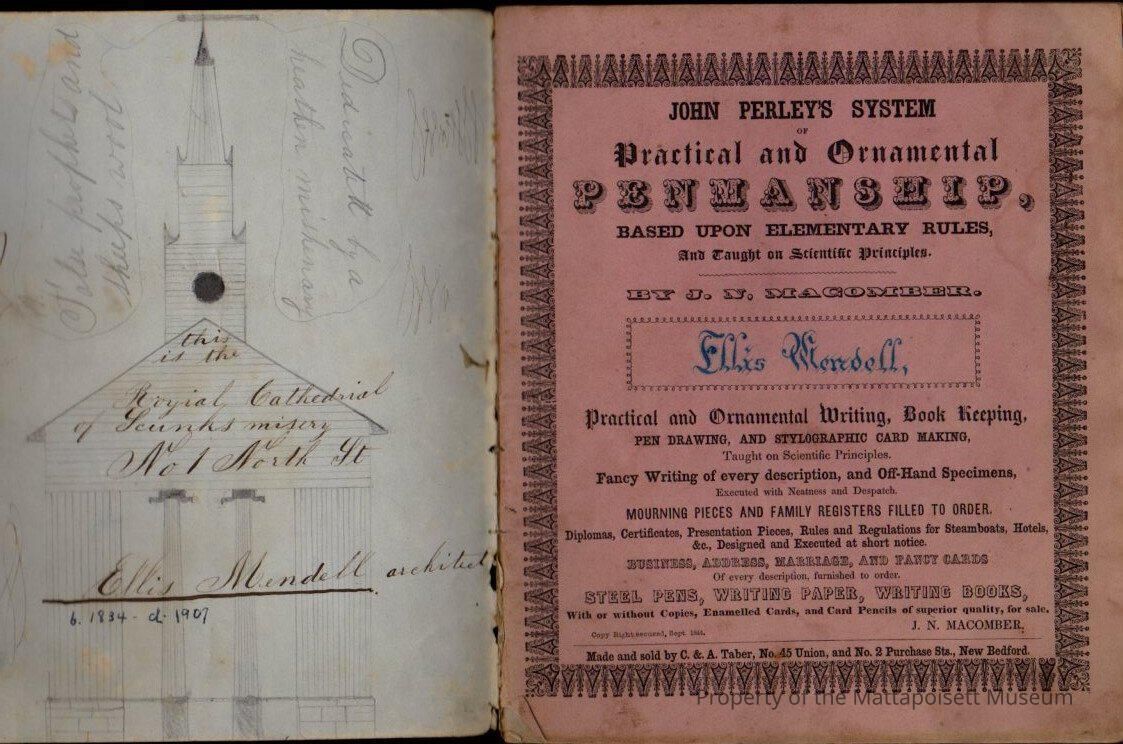 False prophets and
sheeps wool
Dedicatett by a
heathen mishenary
this
is the
Royial Cathedrial
of Scunks misery
No 1 North St
Ellis Mendell architect
b. 1834 - d. 1907
JOHN PERLEY'S SYSTEM
OF
Practical and Ornamental
PENMANSHIP,
BASED UPON ELEMENTARY RULES,
And Taught on Scientific Principles.
BY J. N. MACOMBER.
Ellis Mendell,
Practical and Ornamental Writing, Book Keeping,
PEN DRAWING, AND STYLOGRAPHIC CARD MAKING,
Taught on Scientific Principles.
Fancy Writing of every description, and Off-Hand Specimens,
Executed with Neatness and Despatch.
MOURNING PIECES AND FAMILY REGISTERS FILLED TO ORDER.
Diplomas, Certificates, Presentation Pieces, Rules and Regulations for Steamboats, Hotels,
&c., Designed and Executed at short notice.
BUSINESS, ADDRESS, MARRIAGE, AND FANCY CARDS
Of every description, furnished to order.
STEEL PENS, WRITING PAPER, WRITING BOOKS,
With or without Copies, Enamelled Cards, and Card Pencils of superior quality, for sale.
J. N. MACOMBER.
Copy Right secured, Sept.
Made and sold by C. & A. Taber, No. 45 Union, and No. 2 Purchase Sts., New Bedford.
Property of the Mattapoisett Museum